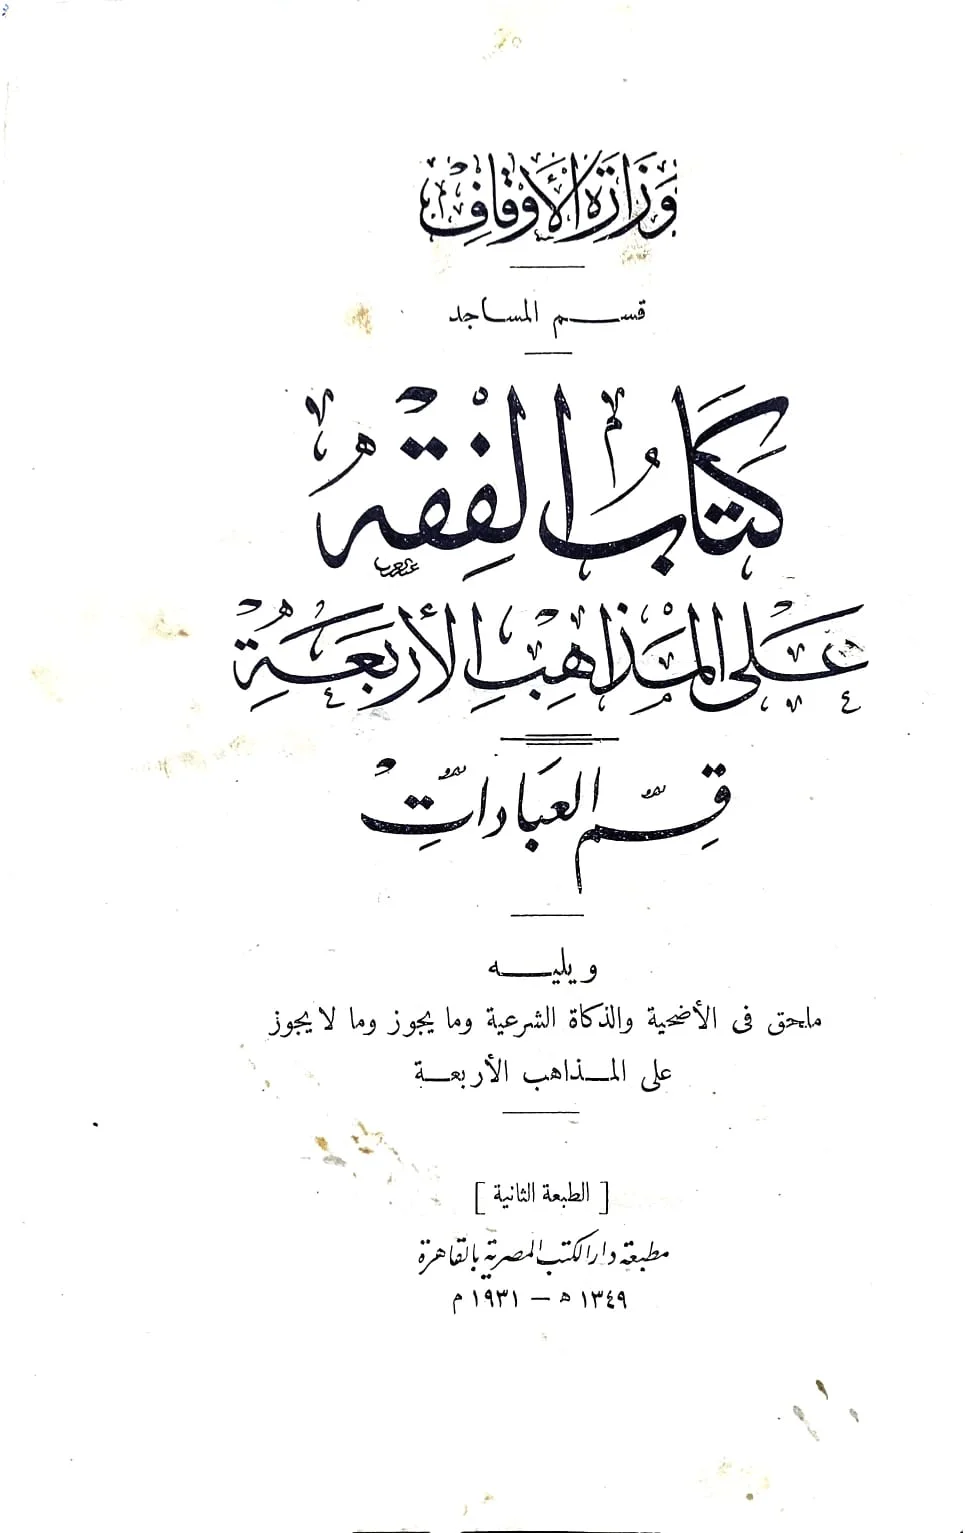 وزارة الأوقاف
قسم المساجد
كتاب الفقه
على المذاهب الأربعة
قسم العبادات
ويليه
ملحق فى الأضحية والذكاة الشرعية وما يجوز وما لا يجوز
على المذاهب الأربعة
[ الطبعة الثانية ]
مطبعة دار الكتب المصرية بالقاهرة
١٣٤٩ ه — ١٩٣١ م